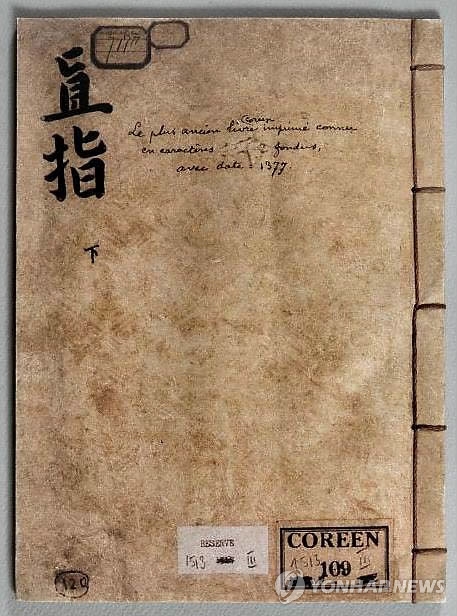 直指
下
Le plus ancien livre Coréen imprimé connu
en caractères fondus,
avec date = 1377.
RESERVE
1513 III
COREEN
109
1513 III
YONHAP NEWS